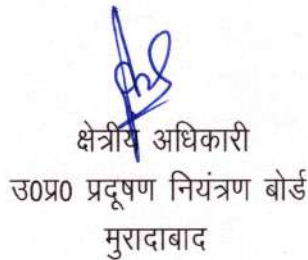 क्षेत्रीय अधिकारी
उ0प्र0 प्रदूषण नियंत्रण बोर्ड
मुरादाबाद